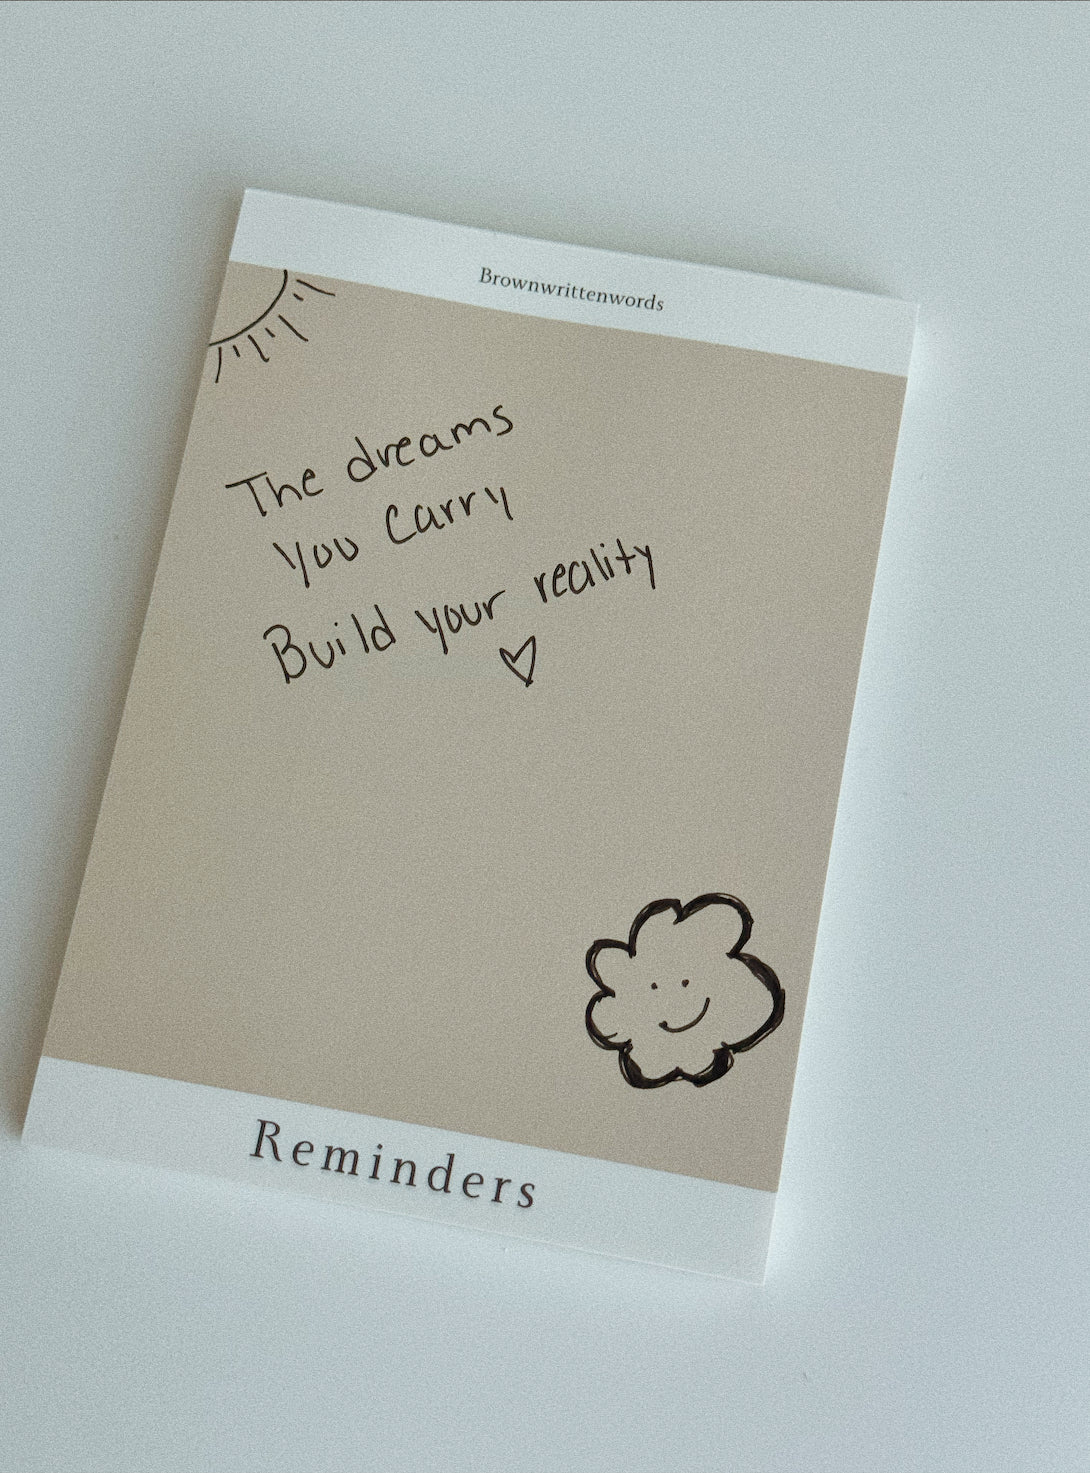 Brownwrittenwords
The dreams
you carry
Build your reality
Reminders